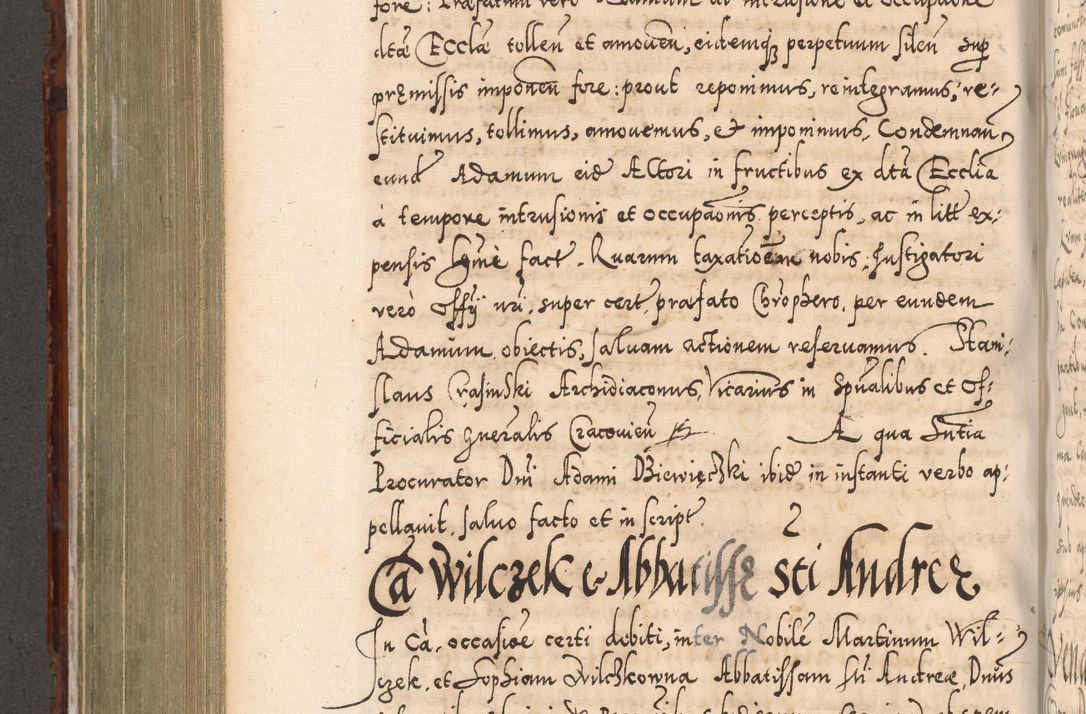 fore: Præfatum vero Adamum ab intrusione et occupaōne
dctā Ecclā tollen et amouen, eidemq perpetuum silen sup
pręmissis imponen fore: prout reponimus, reintegramus, re-
stituimus, tollimus, amouemus, et imponimus, Condemnan
eund Adamum eid Actori in fructibus ex dctā Ecclia
à tempore intrusionis et occupaōnis perceptis, ac in litt ex:
pensis legmè fact. Quarum taxatioēm nobis, Instigatori
verò Offy nri, super cert præfato Chrophero, per eundem
Adamum obiectis, saluam actionem reseruamus. Stani:
slaus Crasinski Archidiaconus, Vicarius in Spualibus et Of-
ficialis gneralis Cracovien A qua Sntia
Procurator Dni Adami Dziewięczki ibid in instanti verbo ap:
pellauit, saluo facto et in script. 2
Ca Wilczek & Abbatissę sti Andreę
In Cā, occasiōe certi debiti, inter Nobile Martinum Wil-
czek, et Sophiam Wilczkowna Abbatissam sti Andreæ, Dnus